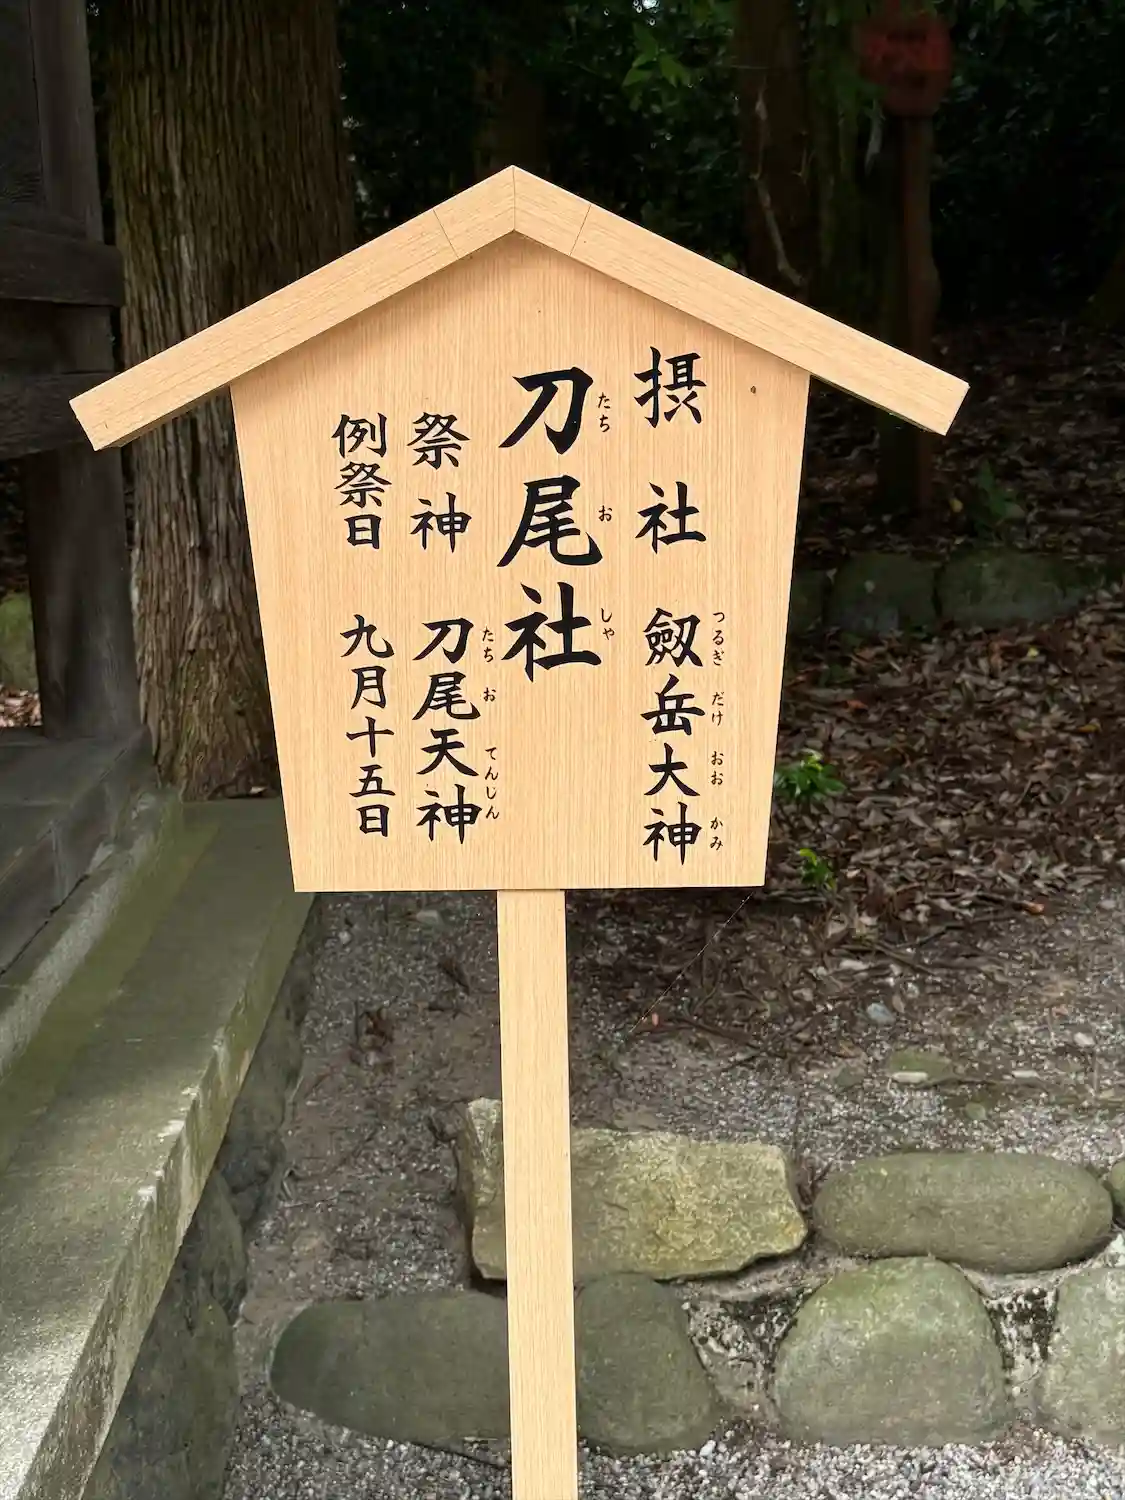 摂社 劔岳大神
つるぎだけおおかみ
刀尾社
たちおしゃ
祭神 刀尾天神
たちおてんじん
例祭日 九月十五日